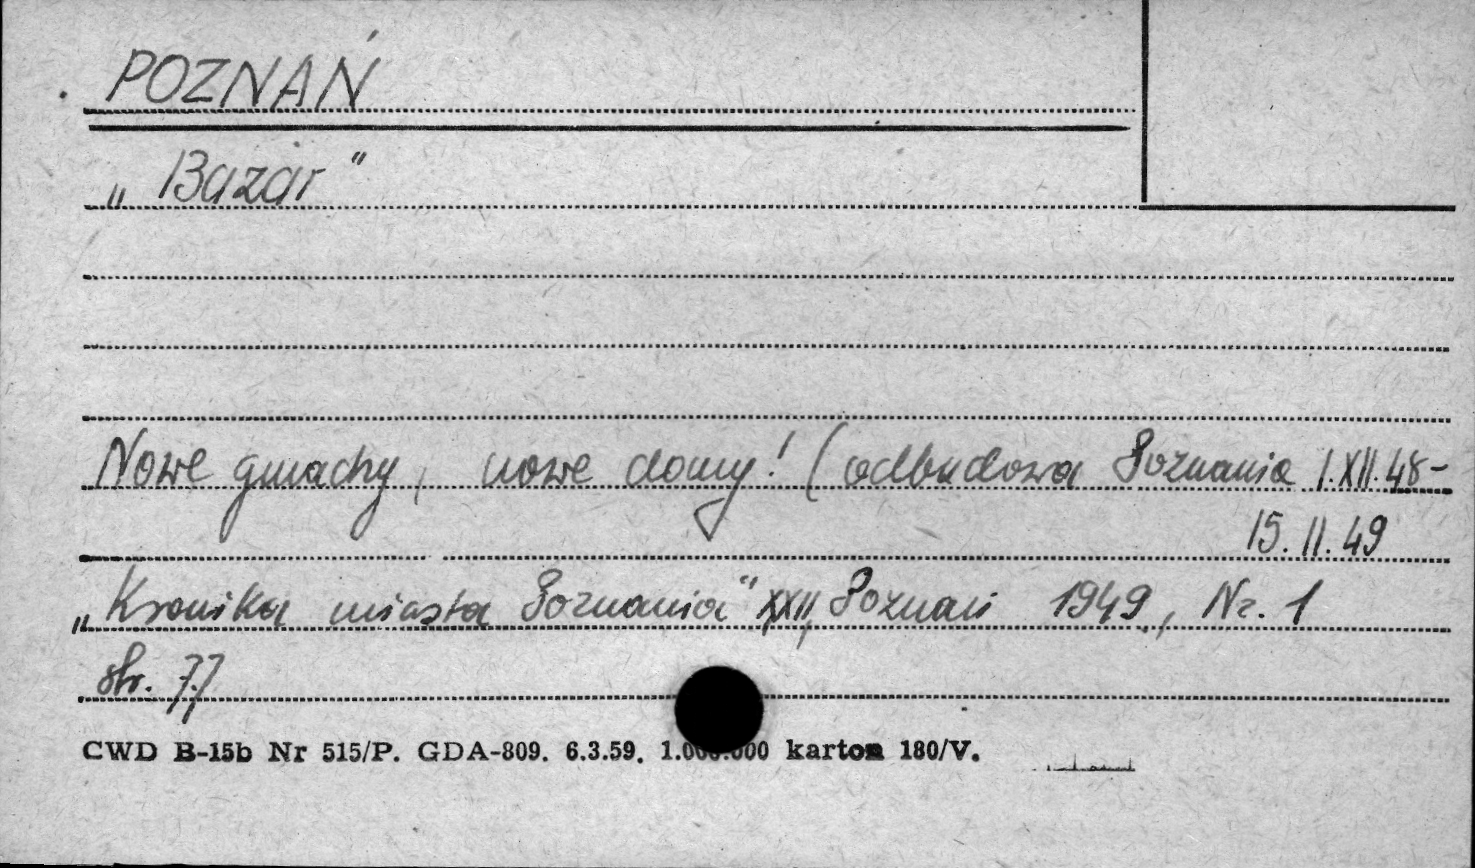 POZNAŃ
„Bazar"
Nowe gmachy, nowe domy! (odbudowa Poznania 1.XII.48-
15.II.49
„Kronika miasta Poznania" XXII, Poznań 1949, Nr. 1
str. 77
CWD B-15b Nr 515/P. GDA-809. 6.3.59. 1.000.000 karton 180/V.